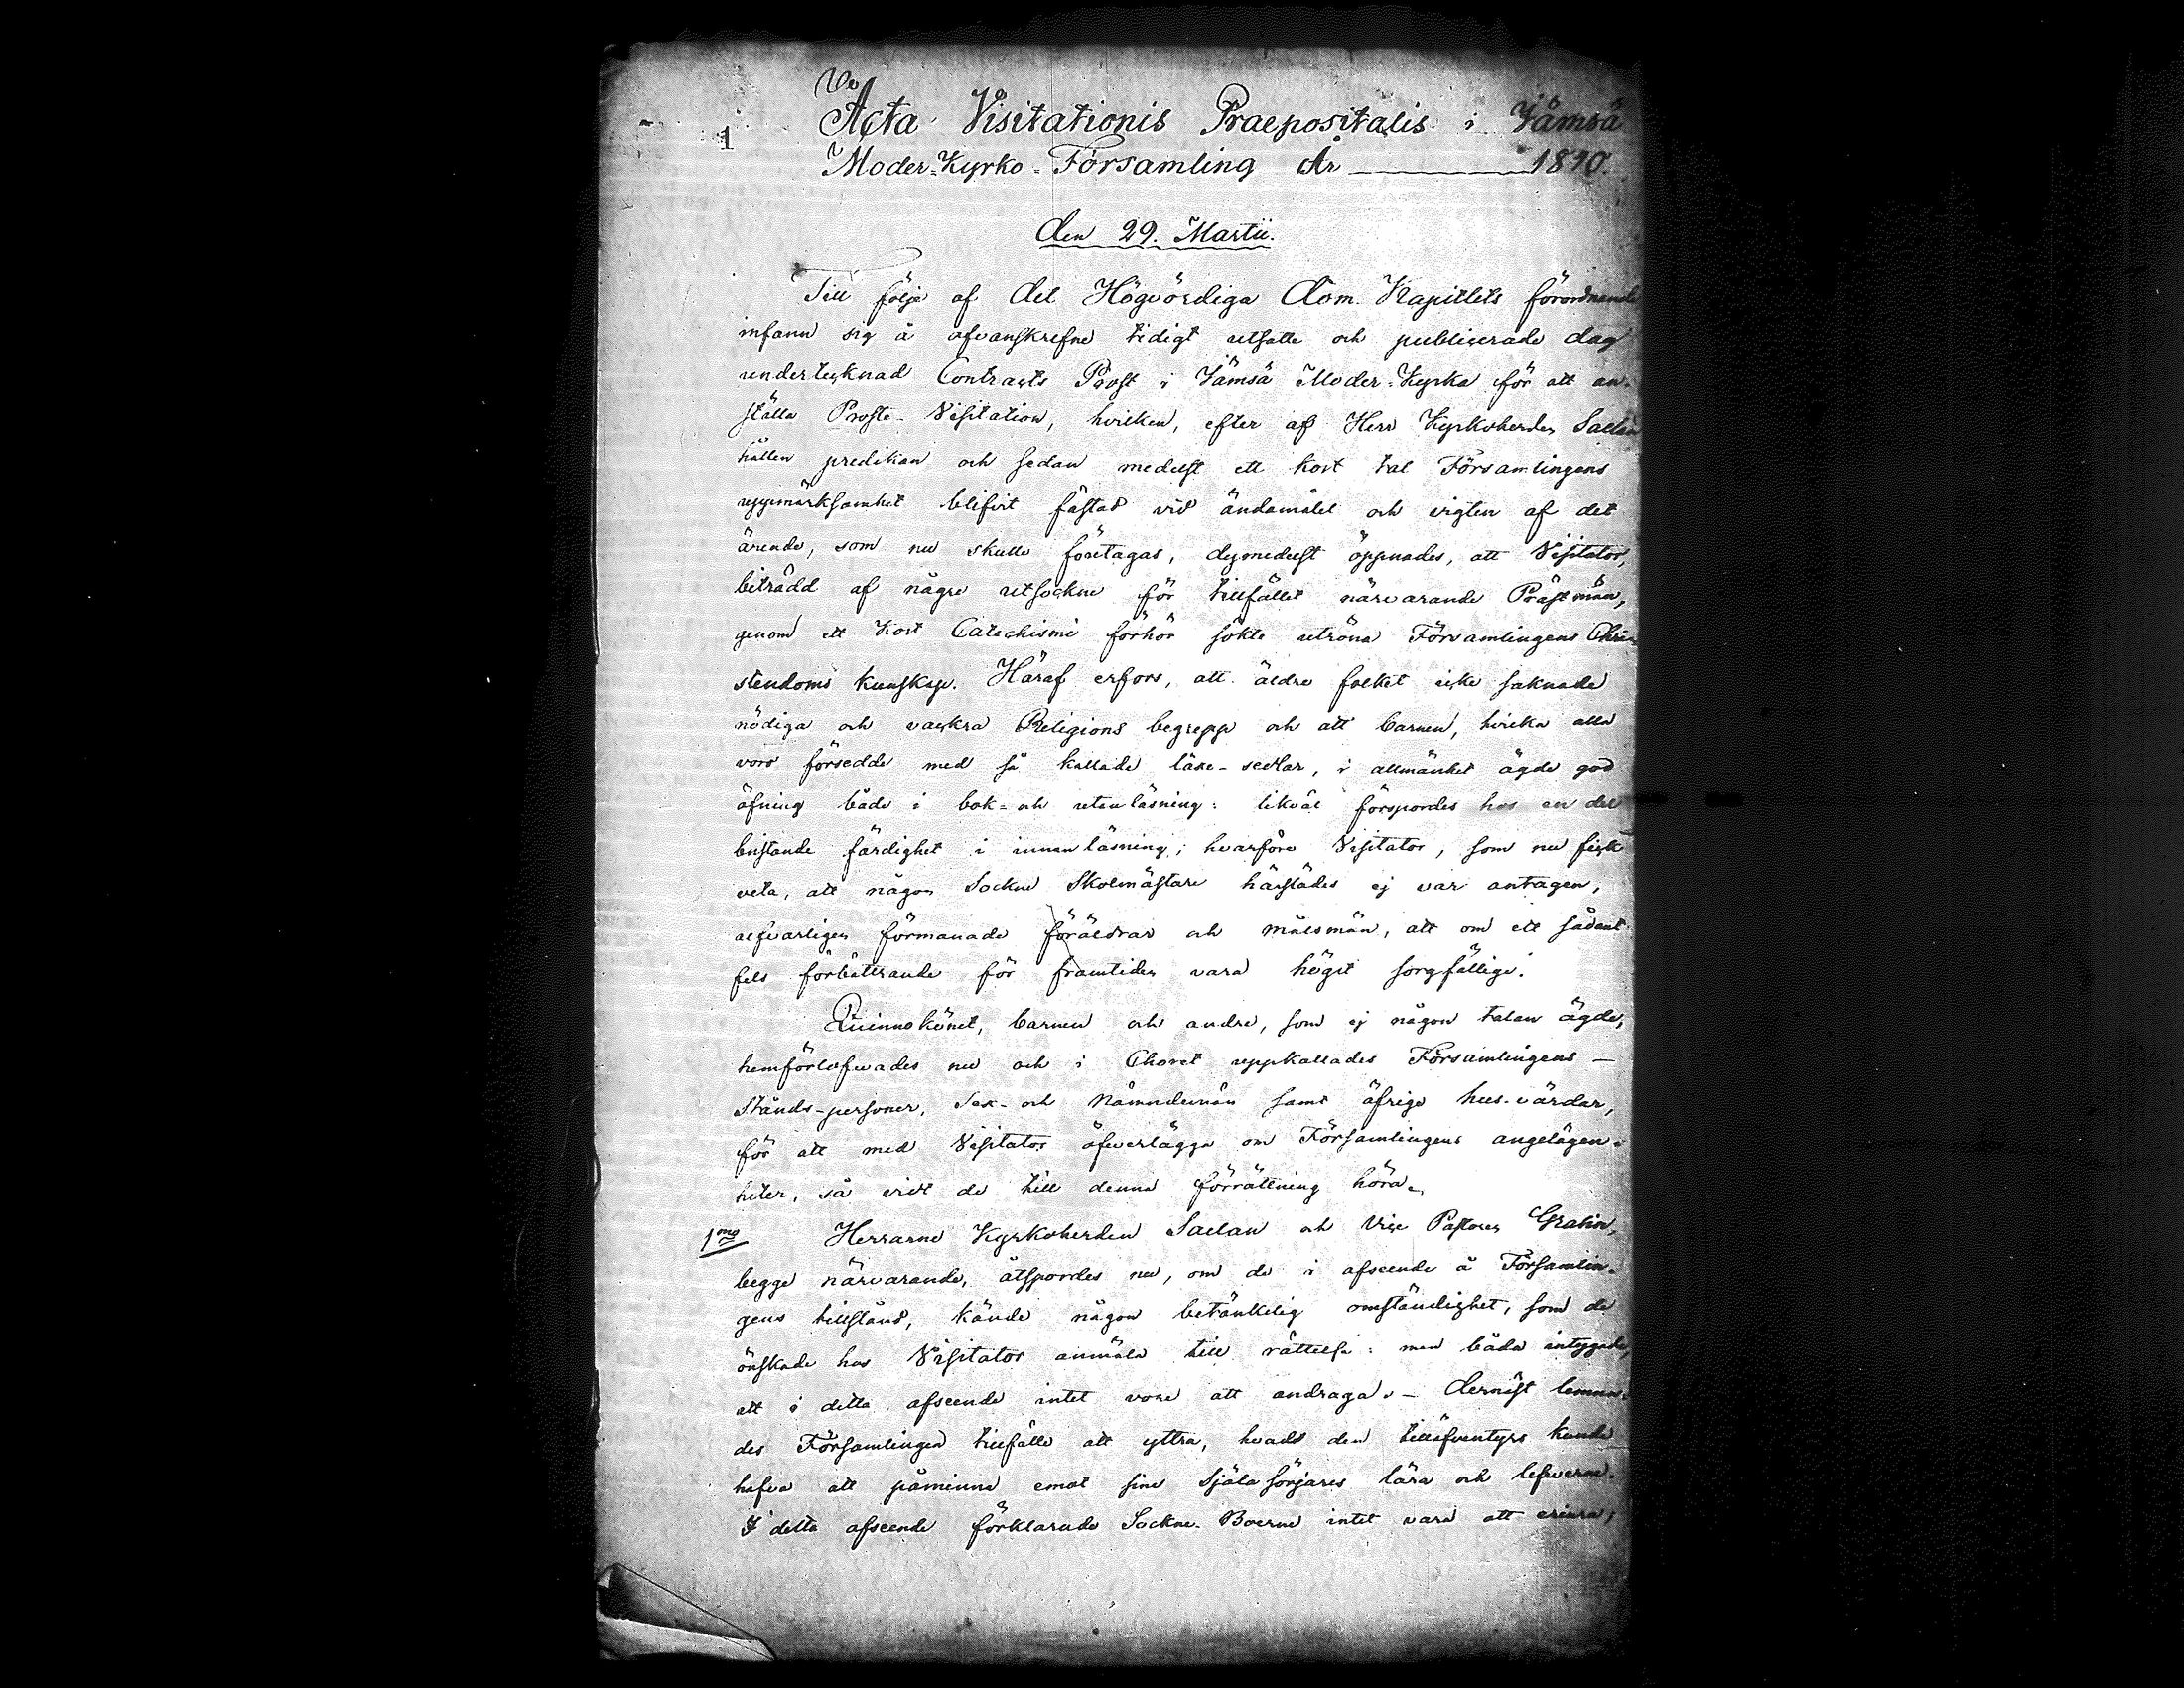 1
Acta Visitationis Praepositalis i Jämsä
Moder-Kyrko-Församling År 1810.
den 29. Martii.
Till följe af Det Högvördiga Dom-Kapitlets förordnande
infann sig å ofvanskrefne tidigt utsatte och publicerade dag
undertecknad Contracts Prost i Jämsä Moder-Kyrka för att an-
ställa Proste-Visitation, hvilken, efter af Herr Kyrkoherden Saelan
hållen predikan och sedan medelst ett kort tal Församlingens
uppmärksamhet blifvit fästad vid ändamålet och vigten af det
ärende, som nu skulle företagas, dymedelst öppnades, att Visitator,
biträdd af någre utsockne för tillfället närvarande Prästmän,
genom ett kort Catechismi förhör sökte utröna Församlingens Chri-
stendoms kunskap. Häraf erfors, att äldre folket icke saknade
nödiga och vackra Religions begrepp och att barnen, hvilka alla
voro försedde med så kallade läxe-sedlar, i allmänhet ägde god
öfning både i bok- och utanläsning: likväl försporדes hos en del
bristande färdighet i innanläsning; hvarföre Visitator, som nu fick
veta, att någon Sockne Skolmästare härstädes ej var antagen,
alfvarligen förmanade föräldrar och målsmän, att om ett sådant
fels förbättrande för framtiden vara högst sorgfällige.
Quinnokönet, barnen och andre, som ej någon talan ägde,
hemförlofvades nu och i Choret uppkallades Församlingens —
Stånds-personer, Sex- och Nämndemän samt öfrige hus-värdar,
för att med Visitator öfverlägga om Församlingens angelägen-
heter, så vidt de till denna förrättning höra.
1mo Herrarne Kyrkoherden Saelan och Vice Pastoren Gratin,
begge närvarande, åtspordes nu, om de i afseende å Församlin-
gens tillstånd, kände någon betänkelig omständighet, som de
önskade hos Visitator anmäla till rättelse: men båda intygade,
att i detta afseende intet vore att andraga. — Dernäst lemna-
des Församlingen tillfälle att yttra, hvad den tilläfventyrs kunde
hafva att påminna emot sine Själasörjares lära och lefverne.
I detta afseende förklarade Sockne-Boerne intet vara att erinra;